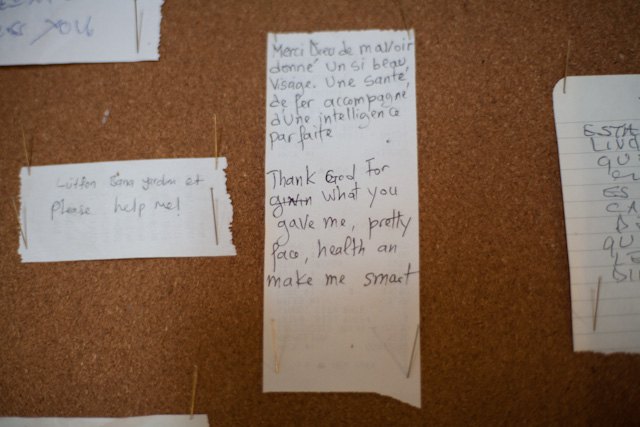 ESS YOU
Lütfon Sana yardım et
Please help me!
Merci Dieu de m'avoir
donné un si beau
visage. Une santé,
de fer accompagné
d'une intelligence
parfaite
Thank God For
what you
gave me, pretty
face, health an
make me smart
ESTA
QU
ES
CA
QU
LE